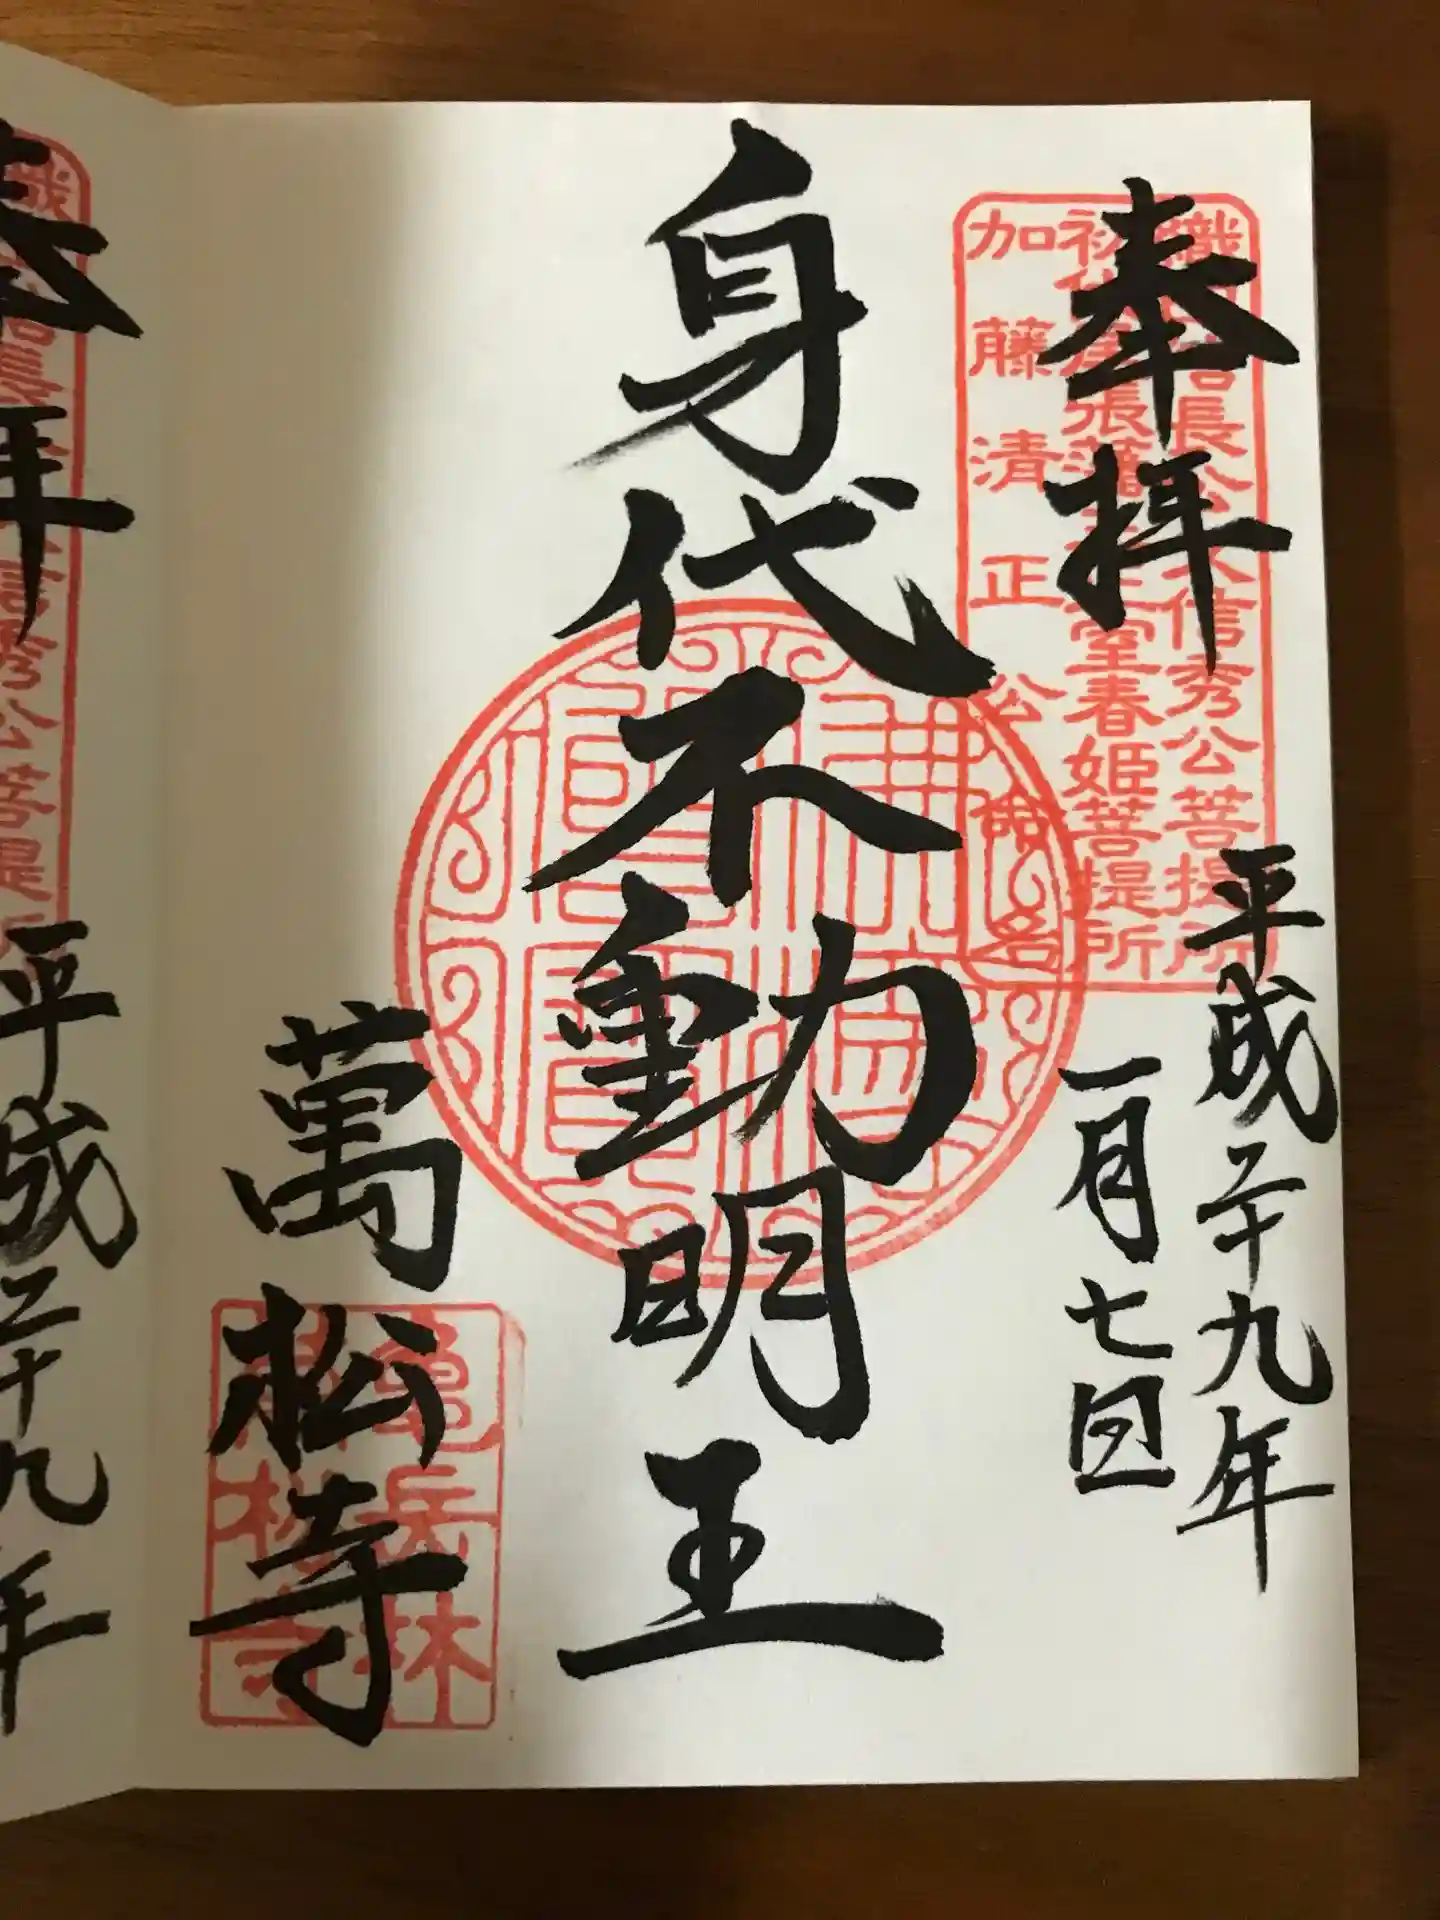 奉拝
織田信長公父信秀公菩提所
初代尾張藩主正室春姫菩提所
加藤清正公命名
平成二十九年
一月七日
身代不動明王
佛法僧寶
萬松寺
亀岳林
萬松寺
奉拝
平成二十九年